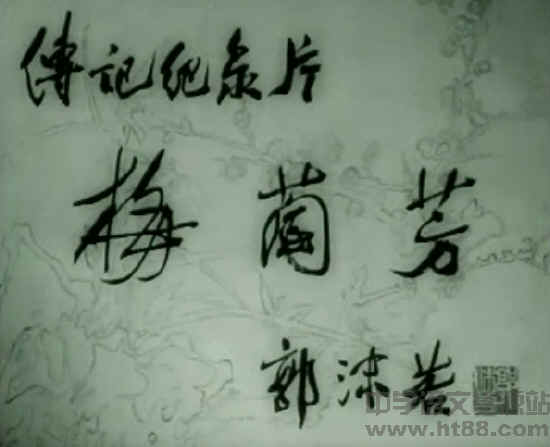 傳記纪录片
梅蘭芳
郭沫若
中学语文资源站
www.ht88.com